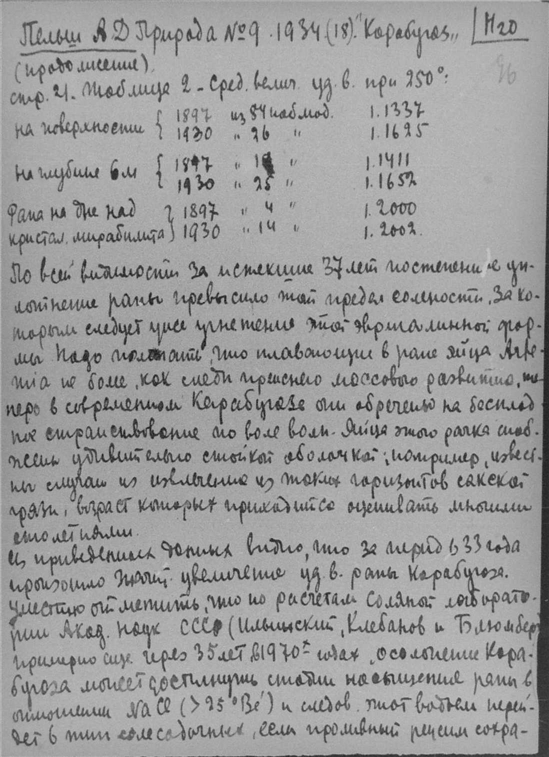 Пельш А Д Природа № 9. 1934. (18). "Карабугаз" | H20
(продолжение).
96
стр. 21. Таблица 2 - Сред. велич. уд. в. при 250°:
на поверхности { 1897 из 84 наблюд. 1.1337
1930 " 26 " 1.1625
на глубине 6 м { 1897 " " 1.1411
1930 " 25 " 1.1652
Рапа на дне над } 1897 " 4 " 1.2000
кристал. мирабилита } 1930 " 14 " 1.2002.
По всей видимости за истекшие 37 лет постепенное уп-
лотнение рапы превысило тот предел солености, за ко-
торым следует уже угнетение этой эвригалинной фор-
мы. Надо полагать, что плавающие в рапе яйца Arte-
mia не более, как следы прежнего массового развития, те-
перь в современном Карабугазе они обречены на бесплод-
ное странствование по воле волн. Яйца этого рачка снаб-
жены удивительно стойкой оболочкой; например, извест-
ны случаи их извлечения из таких горизонтов сакской
грязи, возраст которых приходится оценивать многими
столетиями.
Из приведенных данных видно, что за период в 33 года
произошло значит. увеличение уд. в. рапы Карабугаза.
Уместно отметить, что по расчетам Соляной лаборато-
рии Акад. Наук СССР (Ильинский, Клебанов и Блюмберг)
примерно еще через 35 лет в 1970х годах, осолонение Кара-
бугаза может достигнуть стадии насыщения рапы в
отношении NaCl (>25° Be') и следов. этот водоем перей-
дет в тип солесадочных, если проливный режим сохра-